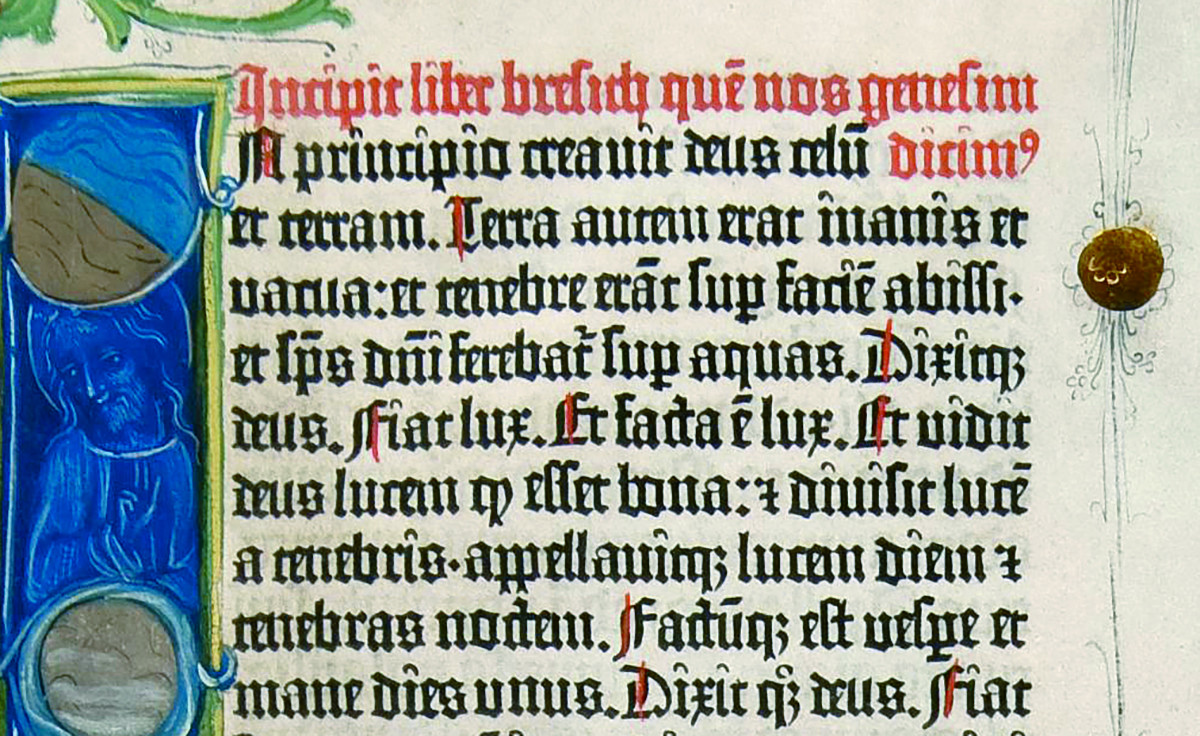 Incipit liber bresith quē nos genesim
In principio creavit deus celū dicimꝰ
et terram. Terra autem erat inanis et
vacua: et tenebre erāt sup faciē abissi·
et sp̄s dn̄i ferebat᷑ sup aquas. Dixitqꝫ
deus. Fiat lux. Et facta ē lux. Et vidit
deus lucem ꝙ esset bona: ⁊ divisit lucē
a tenebris· appellavitqꝫ lucem diem ⁊
tenebras noctem. Factūqꝫ est vespe et
mane dies unus. Dixit qꝫ deus. Fiat